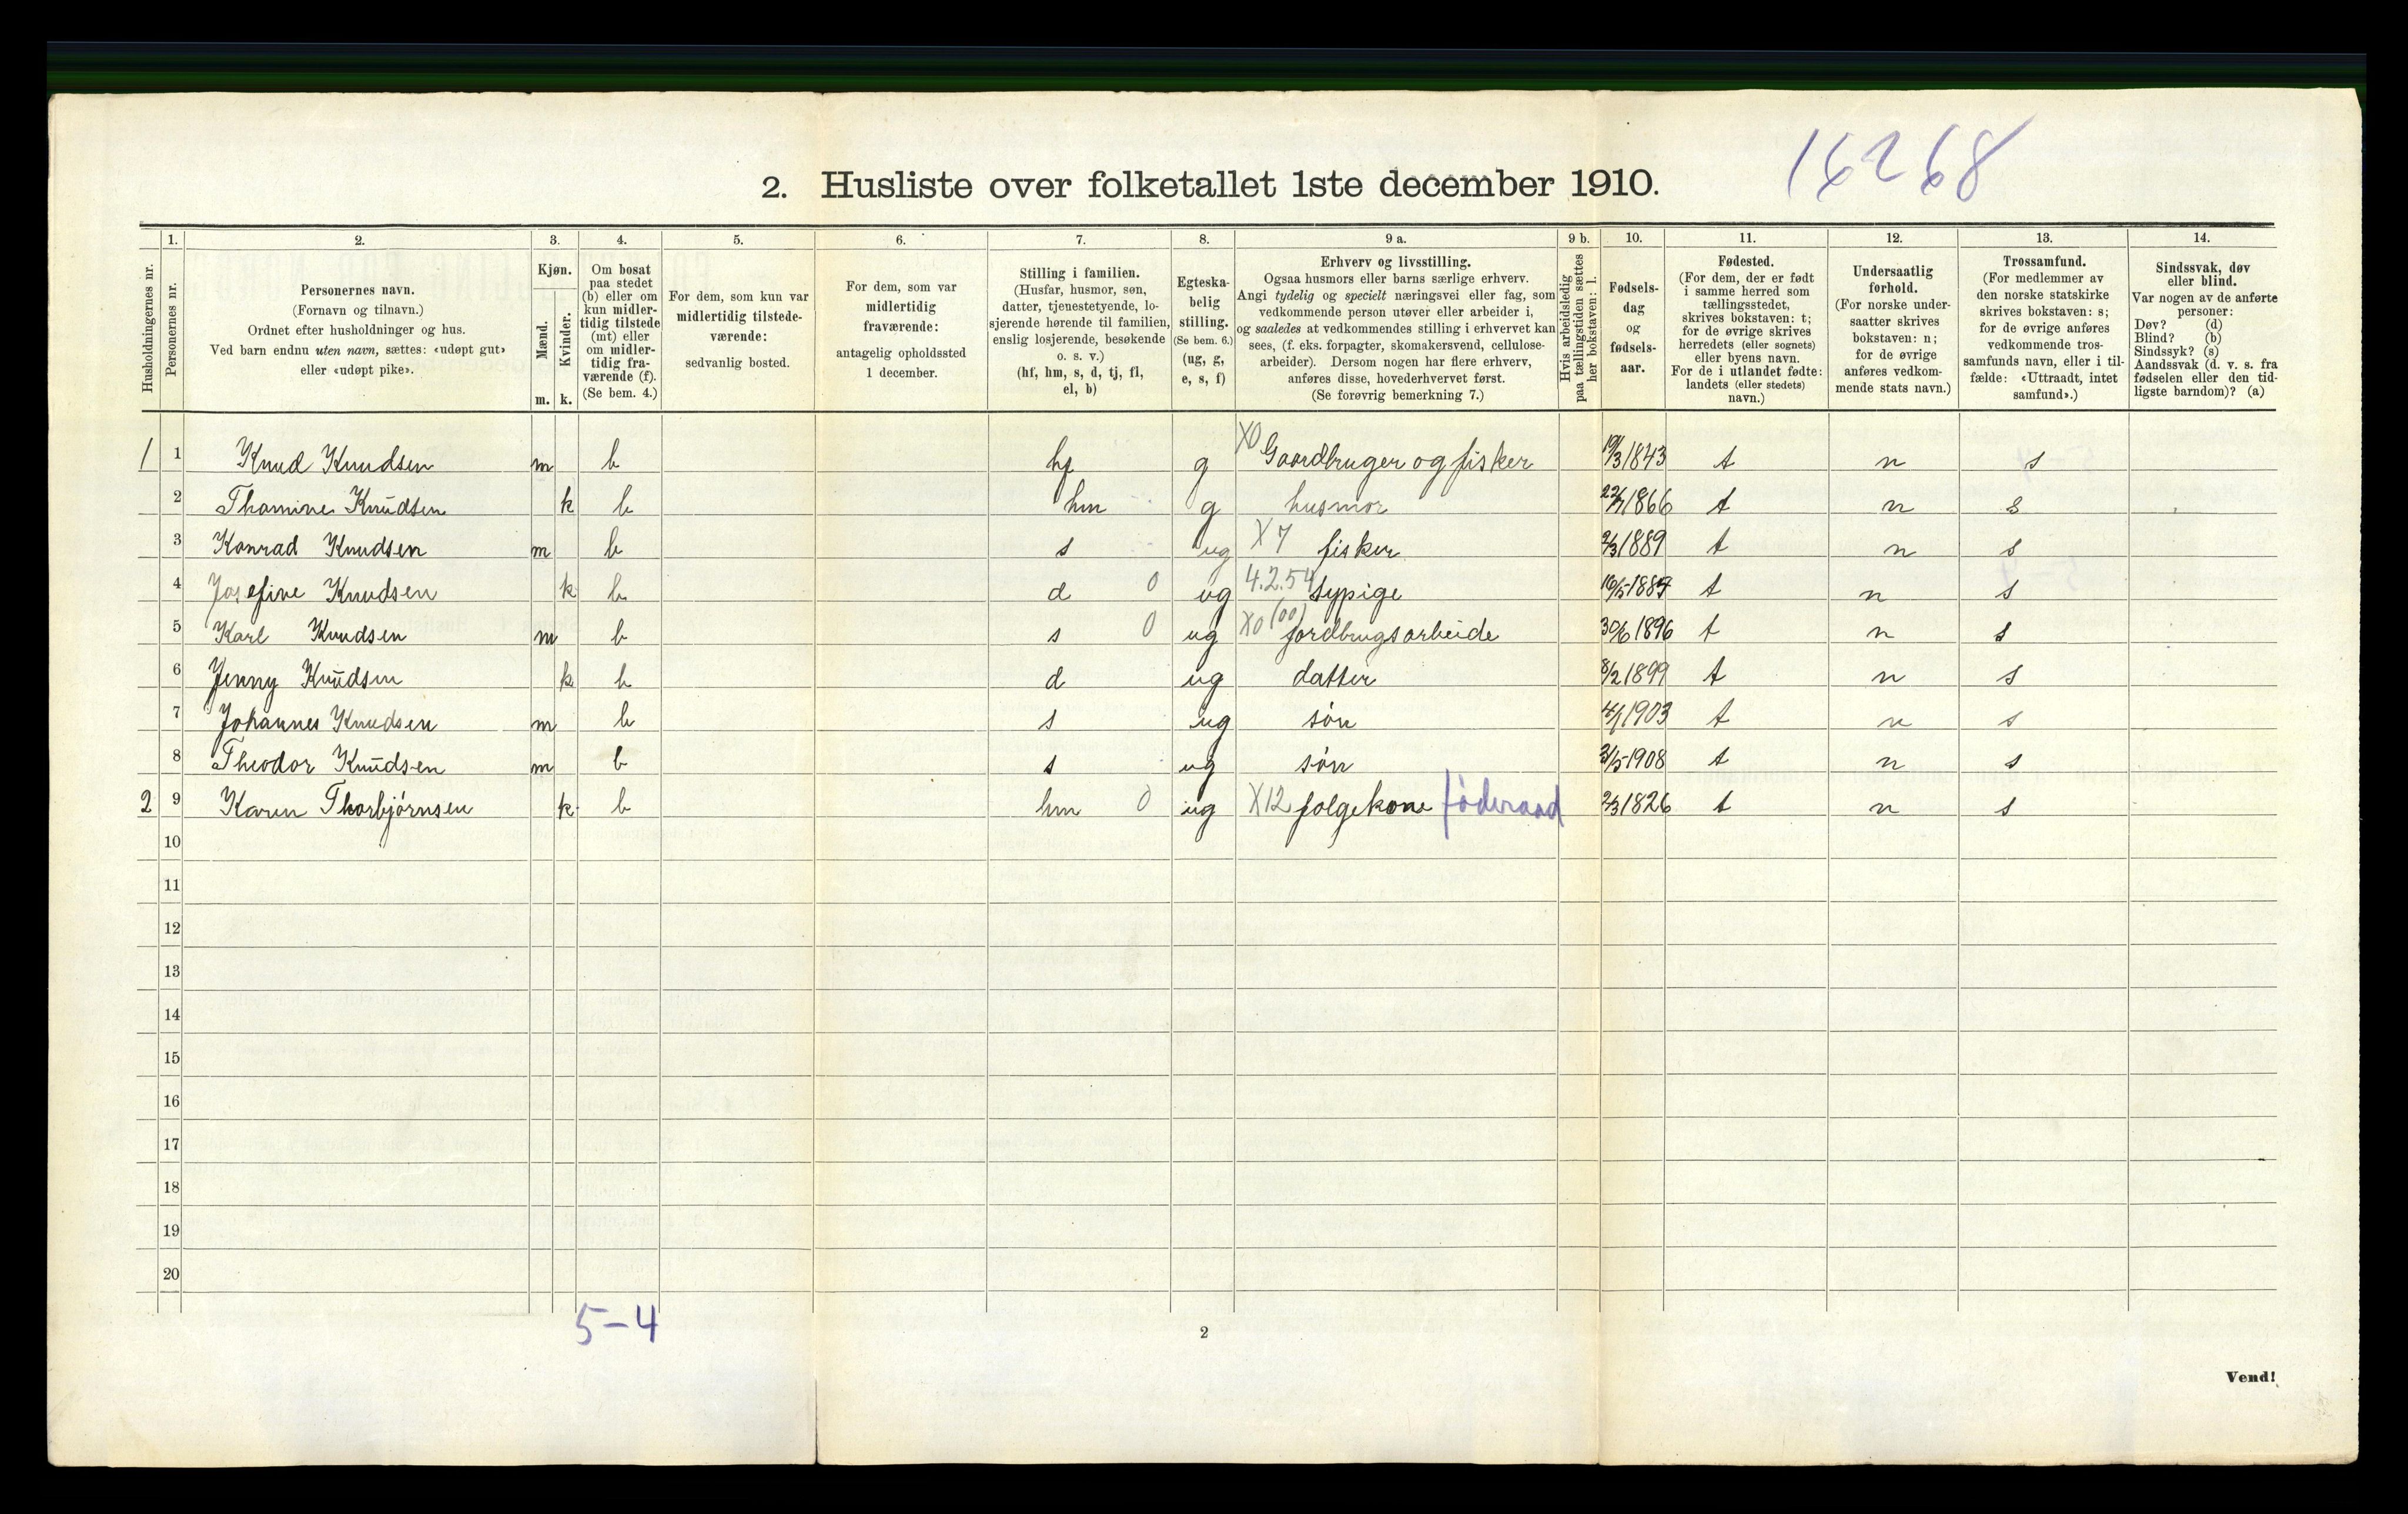 16268
2. Husliste over folketallet 1ste december 1910.
Husholdningernes nr.
1. Personernes nr.
2. Personernes navn. (Fornavn og tilnavn.) Ordnet efter husholdninger og hus. Ved barn endnu uten navn, sættes: «udøpt gut» eller «udøpt pike».
3. Kjøn. Mænd. m. Kvinder. k.
4. Om bosat paa stedet (b) eller om kun midlertidig tilstede (mt) eller om midlertidig fraværende (f). (Se bem. 4.)
5. For dem, som kun var midlertidig tilstedeværende: sedvanlig bosted.
6. For dem, som var midlertidig fraværende: antagelig opholdssted 1 december.
7. Stilling i familien. (Husfar, husmor, søn, datter, tjenestetyende, losjerende hørende til familien, enslig losjerende, besøkende o. s. v.) (hf, hm, s, d, tj, fl, el, b)
8. Egteskabelig stilling. (Se bem. 6.) (ug, g, e, s, f)
9 a. Erhverv og livsstilling. Ogsaa husmors eller barns særlige erhverv. Angi tydelig og specielt næringsvei eller fag, som vedkommende person utøver eller arbeider i, og saaledes at vedkommendes stilling i erhvervet kan sees, (f. eks. forpagter, skomakersvend, cellulosearbeider). Dersom nogen har flere erhverv, anføres disse, hovederhvervet først. (Se forøvrig bemerkning 7.)
9 b. Hvis arbeidsledig paa tællingstiden sættes her bokstaven: l.
10. Fødselsdag og fødselsaar.
11. Fødested. (For dem, der er født i samme herred som tællingsstedet, skrives bokstaven: t; for de øvrige skrives herredets (eller sognets) eller byens navn. For de i utlandet fødte: landets (eller stedets) navn.)
12. Undersaatlig forhold. (For norske undersaatter skrives bokstaven: n; for de øvrige anføres vedkommende stats navn.)
13. Trossamfund. (For medlemmer av den norske statskirke skrives bokstaven: s; for de øvrige anføres vedkommende trossamfunds navn, eller i tilfælde: «Uttraadt, intet samfund».)
14. Sindssvak, døv eller blind. Var nogen av de anførte personer: Døv? (d) Blind? (b) Sindssyk? (s) Aandssvak (d. v. s. fra fødselen eller den tidligste barndom)? (a)
1 1 Knud Knudsen m b hf g X0 Gaardbruger og fisker 19/3 1843 t n s
2 Thomine Knudsen k b hm g husmor 22/7 1866 t n s
3 Konrad Knudsen m b s ug X7 fisker 2/3 1889 t n s
4 Josefine Knudsen k b d 0 ug 4.2.54 sypige t n s
5 Karl Knudsen m b s 0 ug X0 (00) jordbrugsarbeide 30/6 1896 t n s
6 Jenny Knudsen k b d ug datter 8/2 1899 t n s
7 Johannes Knudsen m b s ug søn 4/1 1903 t n s
8 Theodor Knudsen m b s ug søn 1908 t n s
2 9 Karen Thorbjørnsen k b hm 0 ug X12 folgekone føderaad 2/3 1826 t n s
10
11
12
13
14
15
16
17
18
19
20
5-4
2
Vend!